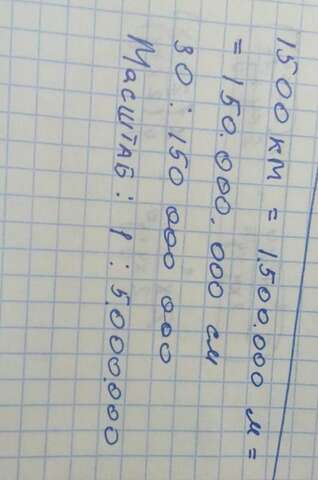 1500 км = 1.500.000 м =
= 150.000.000 см
30 : 150 000 000
Масштаб : 1 : 5.000.000